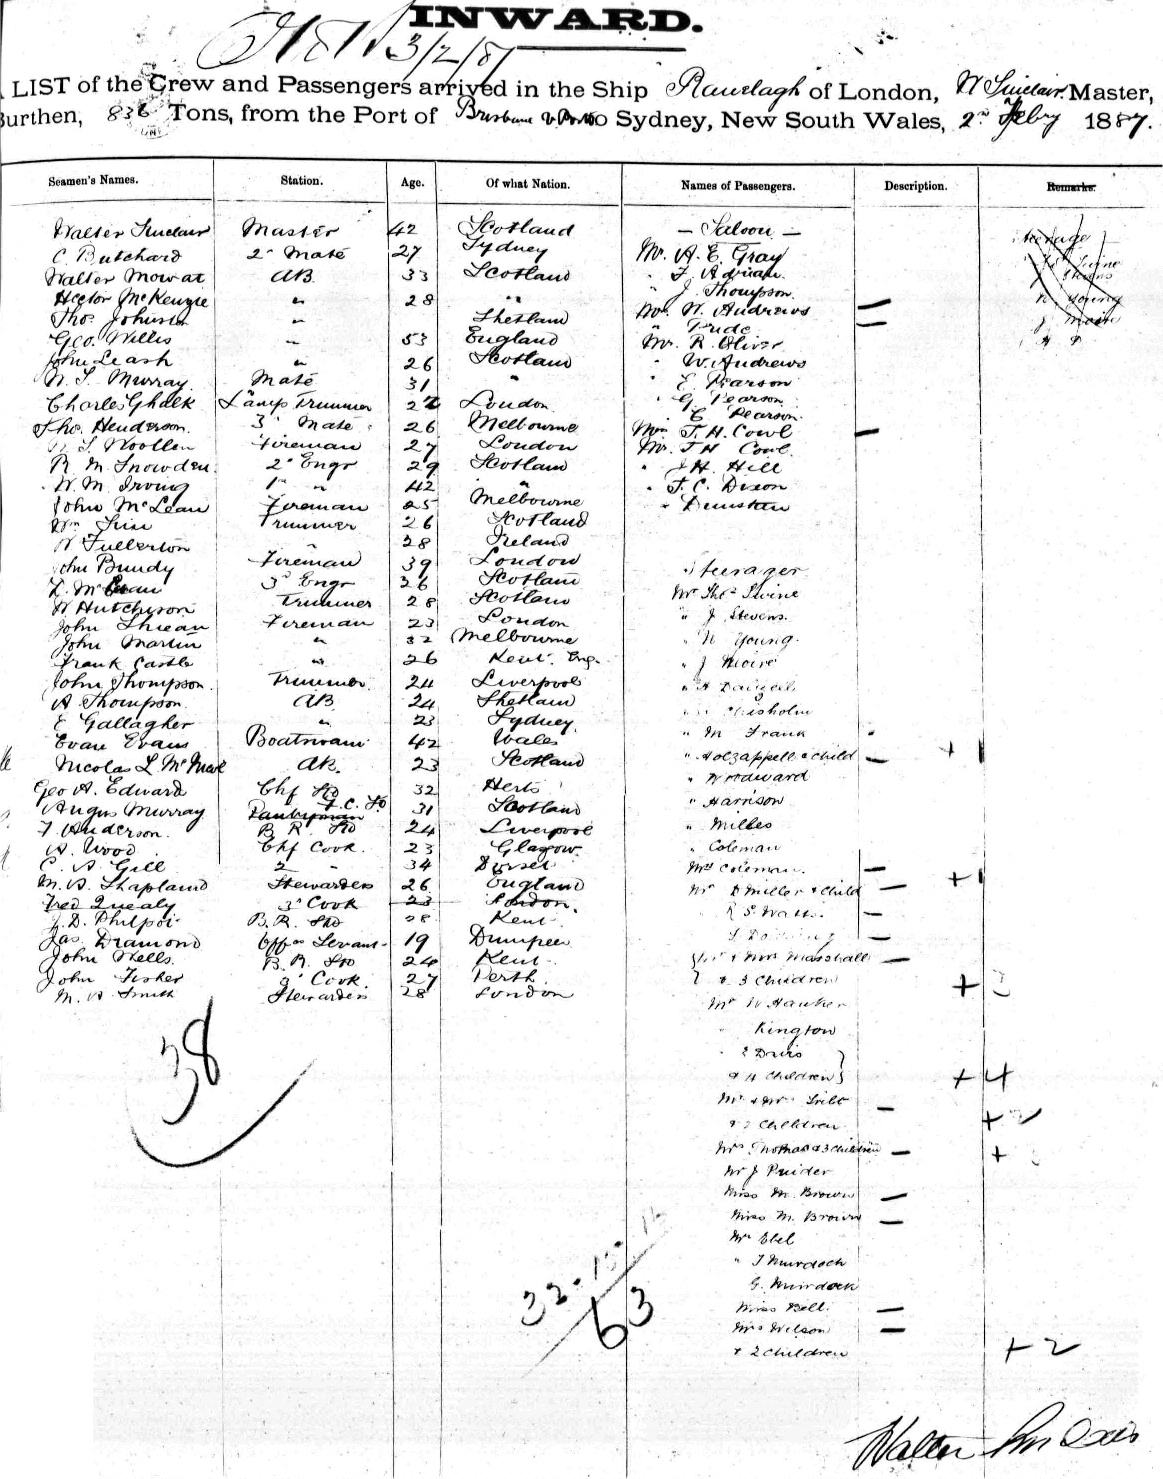 INWARD.
3/2/87
LIST of the Crew and Passengers arrived in the Ship Ranelagh of London, W Sinclair Master,
Burthen, 836 Tons, from the Port of Brisbane to Sydney, New South Wales, 2nd Feby 1887.
Seamen's Names. Station. Age. Of what Nation. Names of Passengers. Description. Remarks.
Walter Sinclair Master 42 Scotland — Saloon —
C. Butchard 2d Mate 27 Sydney Mr. A. E. Gray
Walter Mowat AB 33 Scotland
Hector McKenzie " 28 " " J. Thompson.
Thos Johnston " Shetland Mrs. W. Andrews
Geo. Willis " 53 England " Pride
John Leash " 26 Scotland Mr. R Oliver
W. S. Murray Mate 31 " " W. Andrews
Charles Ghalk Lamp Trimmer London " E Pearson
Thos. Henderson. 3d Mate 26 Melbourne " G. Pearson
Woollen Fireman 27 London " C Pearson.
R. M. Snowden. 2d Engr 29 Scotland Mrs J. H. Cowl
W. M. Irving 1st " 42 " Mr. J H Cowl
John McLean Fireman 25 Melbourne " J H. Hill
Wm Sim Trimmer 26 Scotland " F. C. Dixon
W Fullerton " 28 Ireland " Dunstan
John Bundy Fireman 39 London
3d Engr 26 Scotland Steerage
W Hutchison Trimmer 28 Scotland Mr Thos Irvine
John Fireman 23 London " J Stevens.
John Martin " 32 Melbourne " W Young.
Frank Castle " 26 Kent. Eng. " J Moire
John Thompson. Trimmer 24 Liverpool " A Dalzell
A. Thompson AB 24 Shetland Chisholm
E Gallagher " 23 Sydney " M Frank
Evan Evans Boatswain 42 Wales " Holzappell & child + 1
Nicolas L. AB. 23 Scotland " Woodward
Geo A. Edward Chf Std 32 Herts " Harrison
Angus Murray Pantryman F. C. St 31 Scotland " Milles
J. Anderson. B. R. Std 24 Liverpool " Coleman
A. Wood Chf Cook. 23 Glasgow. Mrs Coleman.
C. A Gill 2 " 34 Dorset Mr D Miller & Child + 1
M. A. Shapland Stewardess 26 England R S. Watts.
Fred Quealy 3d Cook 23 London.
J. D. Philpot B. R. Std 28 Kent Mr & Mrs Marshall
Jas. Dramond Offrs Servant 19 & 3 Children + 3
John Wells B. R. Std 24 Kent Mr W Hawker
John Fisher 3d Cook. 27 Perth Kington
M. A Smith Stewardess 28 London Davis
38
& 4 Children + 4
Mr & Mrs
& 2 Children + 2
Mrs Thomas & 3 Children +
Mr J
Miss M. Brown
Miss M. Brown
Mr Ebel
" J Murdoch
G. Murdoch
Miss Bell.
Mrs Wilson
& 2 Children + 2
63
Walter Sinclair